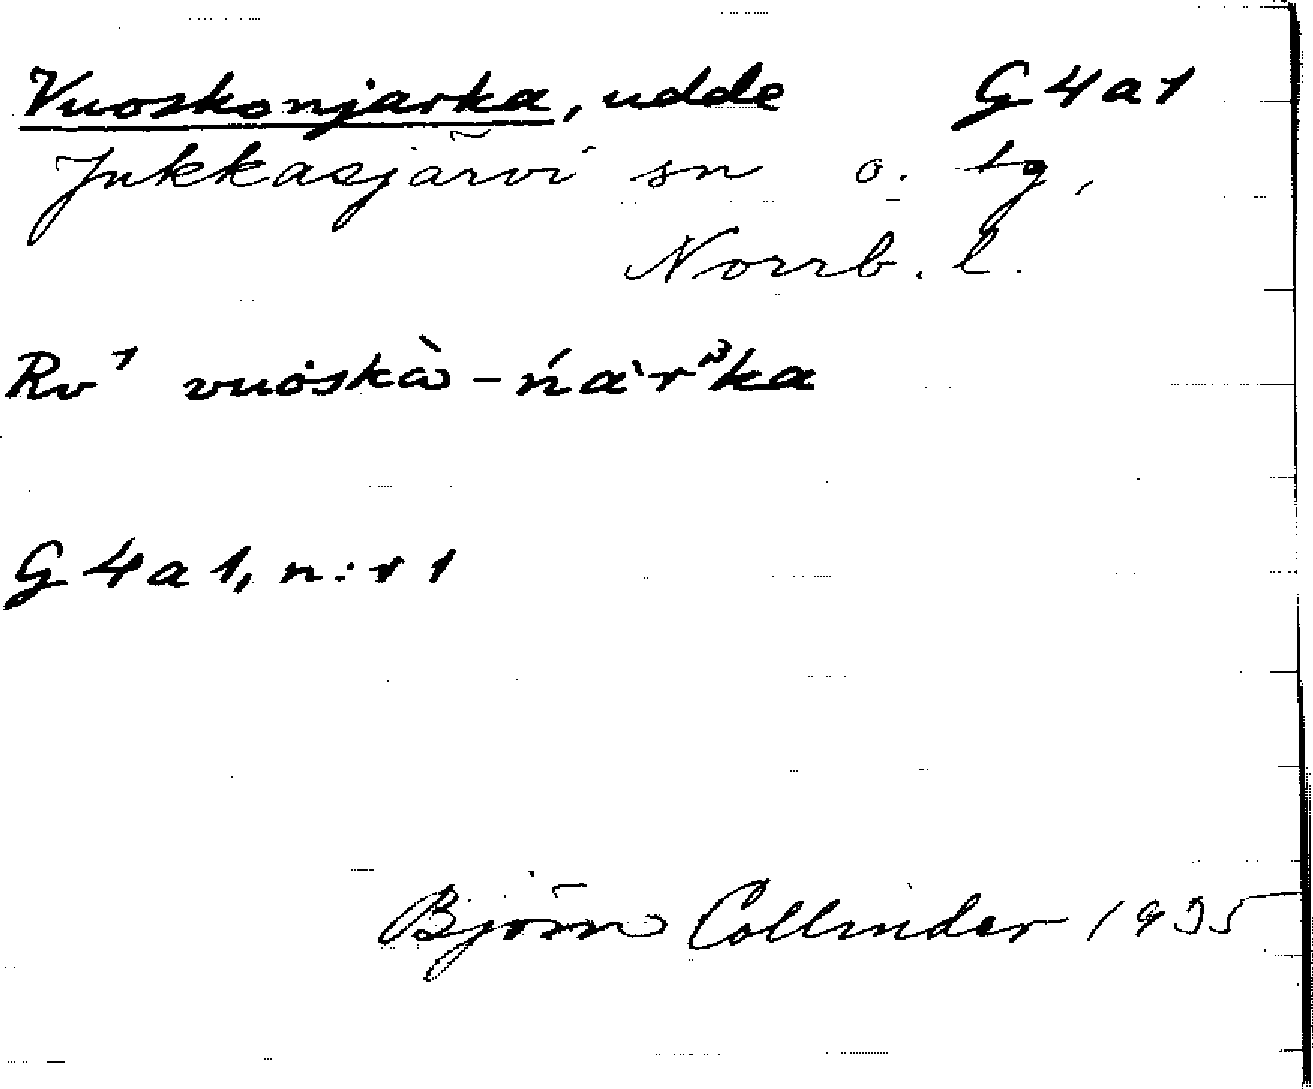 Vuoskonjarka, udde G4a1
Jukkasjärvi sn o. tg,
Norrb. l.
Rv¹ vuȯskὰ-ńàrᵌka
G4a1, n:r 1
Björn Collinder 1935